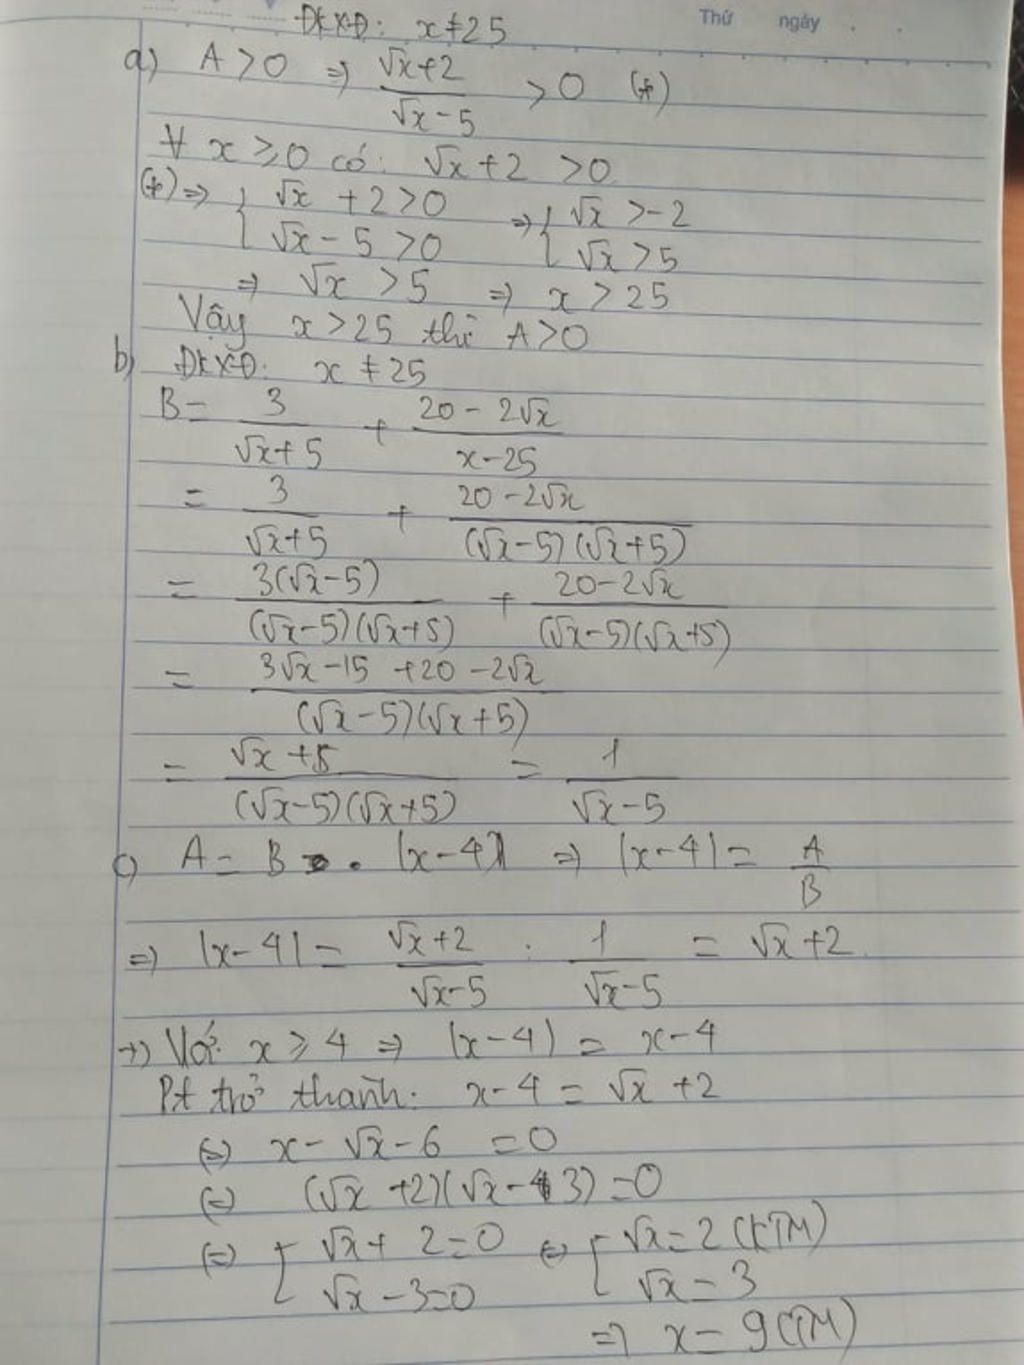 Thứ ngày . .
ĐKXĐ: x ≠ 25
a) A > 0 ⇒ (√x+2)/(√x-5) > 0 (*)
∀ x ≥ 0 có: √x + 2 > 0
(*) ⇒ { √x + 2 > 0 ⇒ { √x > -2
√x - 5 > 0 √x > 5
⇒ √x > 5 ⇒ x > 25
Vậy x > 25 thì A > 0
b) ĐKXĐ: x ≠ 25
B = 3/(√x+5) + (20 - 2√x)/(x-25)
= 3/(√x+5) + (20-2√x)/((√x-5)(√x+5))
= 3(√x-5)/((√x-5)(√x+5)) + (20-2√x)/((√x-5)(√x+5))
= (3√x-15+20-2√x)/((√x-5)(√x+5))
= (√x+5)/((√x-5)(√x+5)) = 1/(√x-5)
c) A = B . |x-4| ⇒ |x-4| = A/B
⇒ |x-4| = (√x+2)/(√x-5) : 1/(√x-5) = √x+2.
+) Với x ≥ 4 ⇒ |x-4| = x-4
Pt trở thành: x-4 = √x +2
(=) x - √x - 6 = 0
(=) (√x +2)(√x - 3) = 0
(=) [ √x + 2 = 0 (=) [ √x = 2 (KTM)
√x - 3 = 0 √x = 3
⇒ x = 9 (TM)